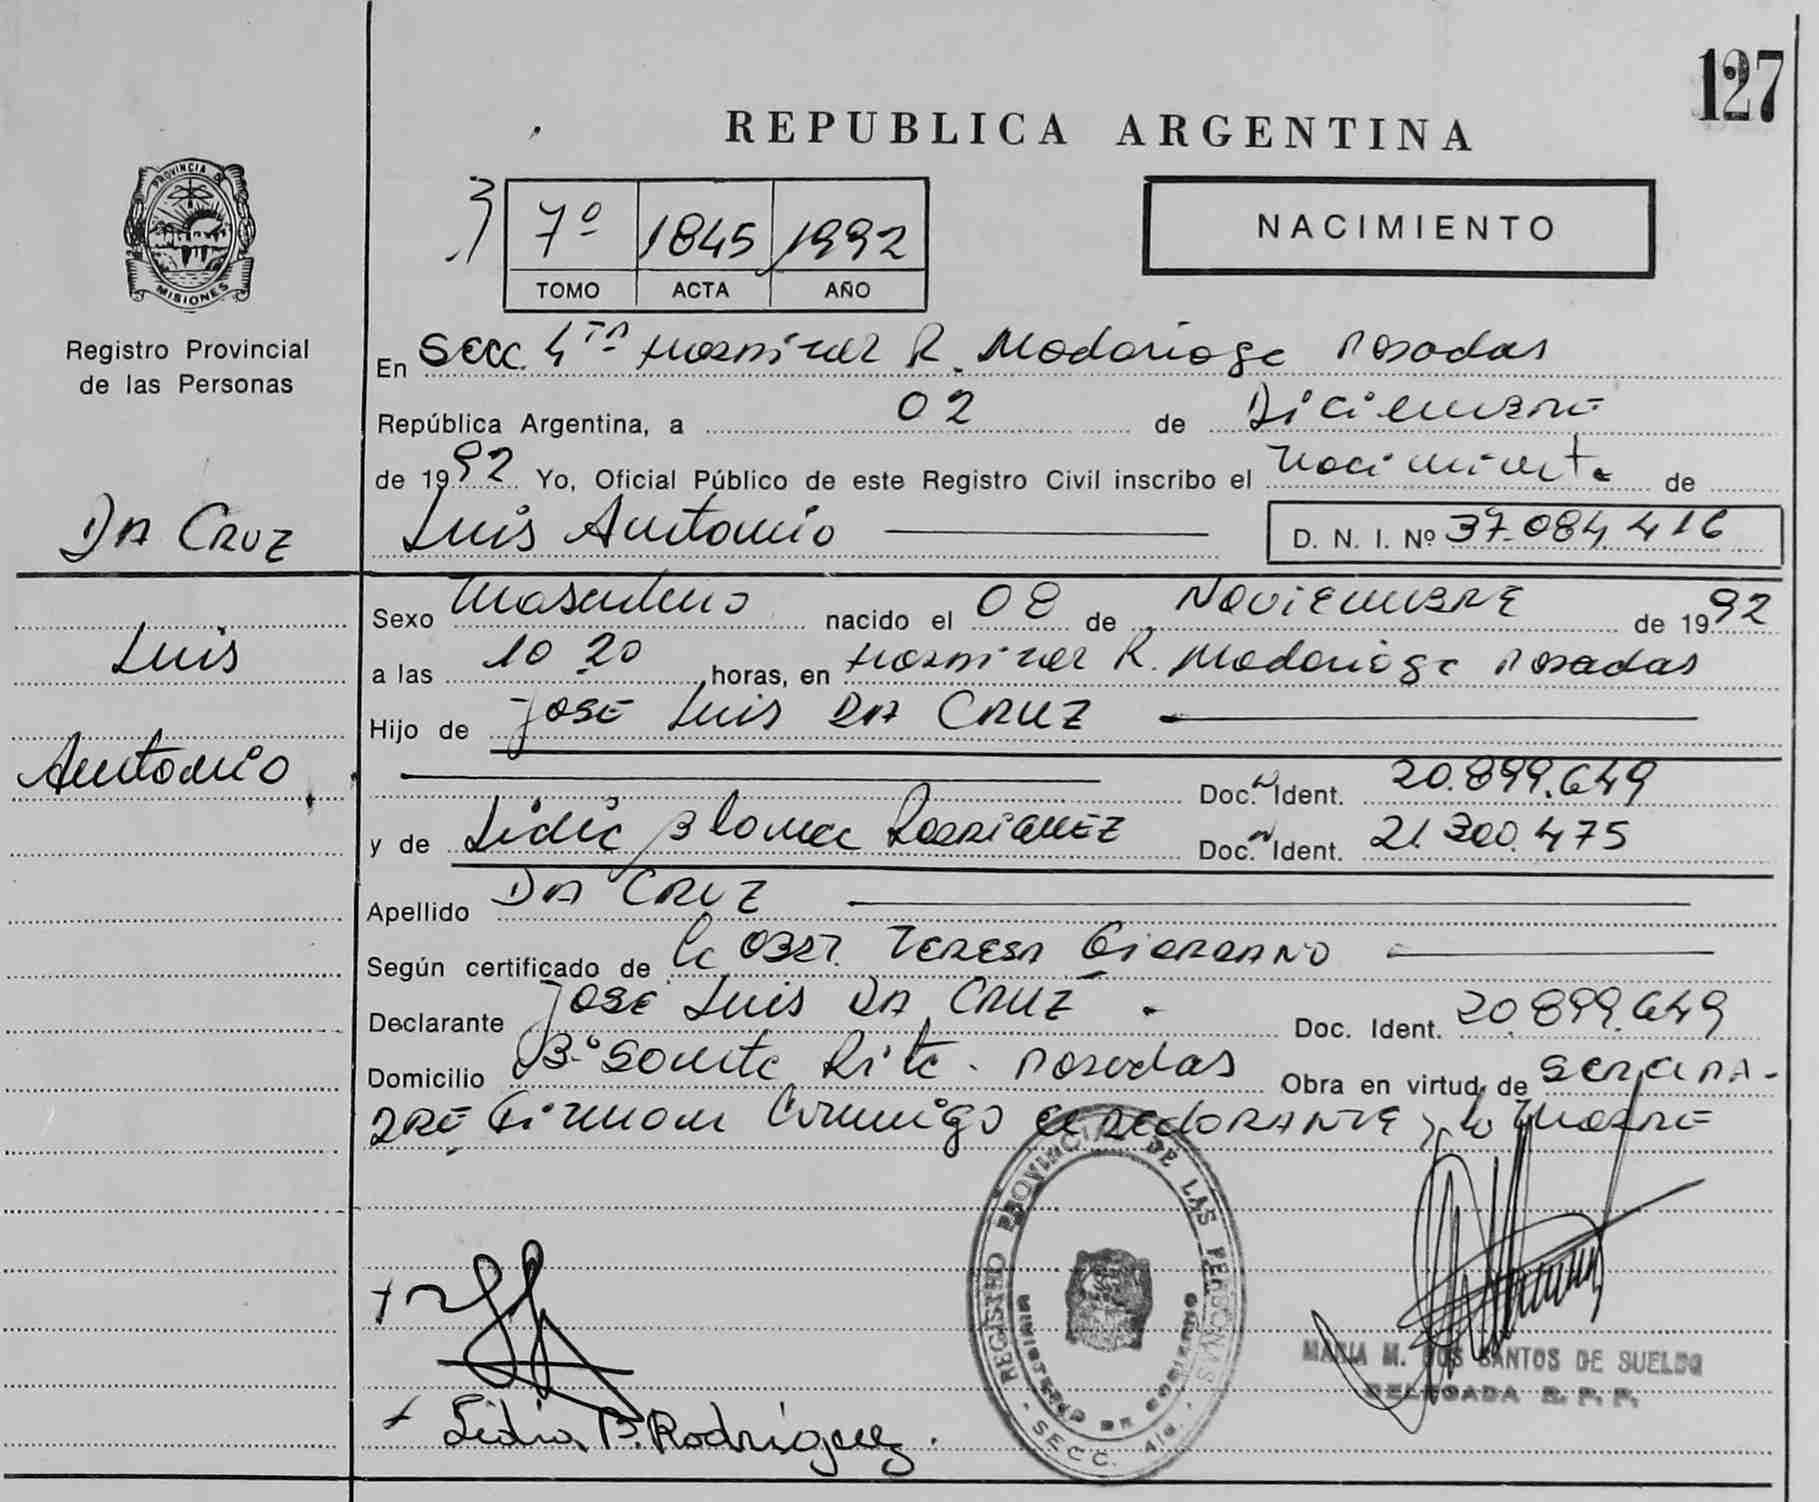 127
REPUBLICA ARGENTINA
7º 1845 1992
TOMO ACTA AÑO
NACIMIENTO
PROVINCIA DE MISIONES
Registro Provincial
de las Personas
En Secc. 4ta Hospital R. Madariaga Posadas
República Argentina, a 02 de Diciembre
de 1992 Yo, Oficial Público de este Registro Civil inscribo el nacimiento de
DA CRUZ
Luis Antonio
D. N. I. Nº 37.084.416
Sexo Masculino nacido el 08 de NOVIEMBRE de 1992
Luis
a las 10 20 horas, en Hospital R. Madariaga Posadas
Hijo de JOSE Luis DA CRUZ
Antonio
Doc. Ident. 20.899.649
y de Lidia Blanca RODRIGUEZ Doc. Ident. 21.300.475
Apellido DA CRUZ
Según certificado de la OBST. TERESA GIORDANO
Declarante JOSE Luis DA CRUZ Doc. Ident. 20.899.649
Domicilio Bº Santa Rita - Posadas Obra en virtud de SER EL PA-
DRE Firman Conmigo el DECLARANTE y la MADRE
REGISTRO PROVINCIAL DE LAS PERSONAS
MINISTERIO DE GOBIERNO
SECC. 4ta.
MARIA M. DOS SANTOS DE SUELDO
DELEGADA R. P. P.
Lidia B. Rodríguez.